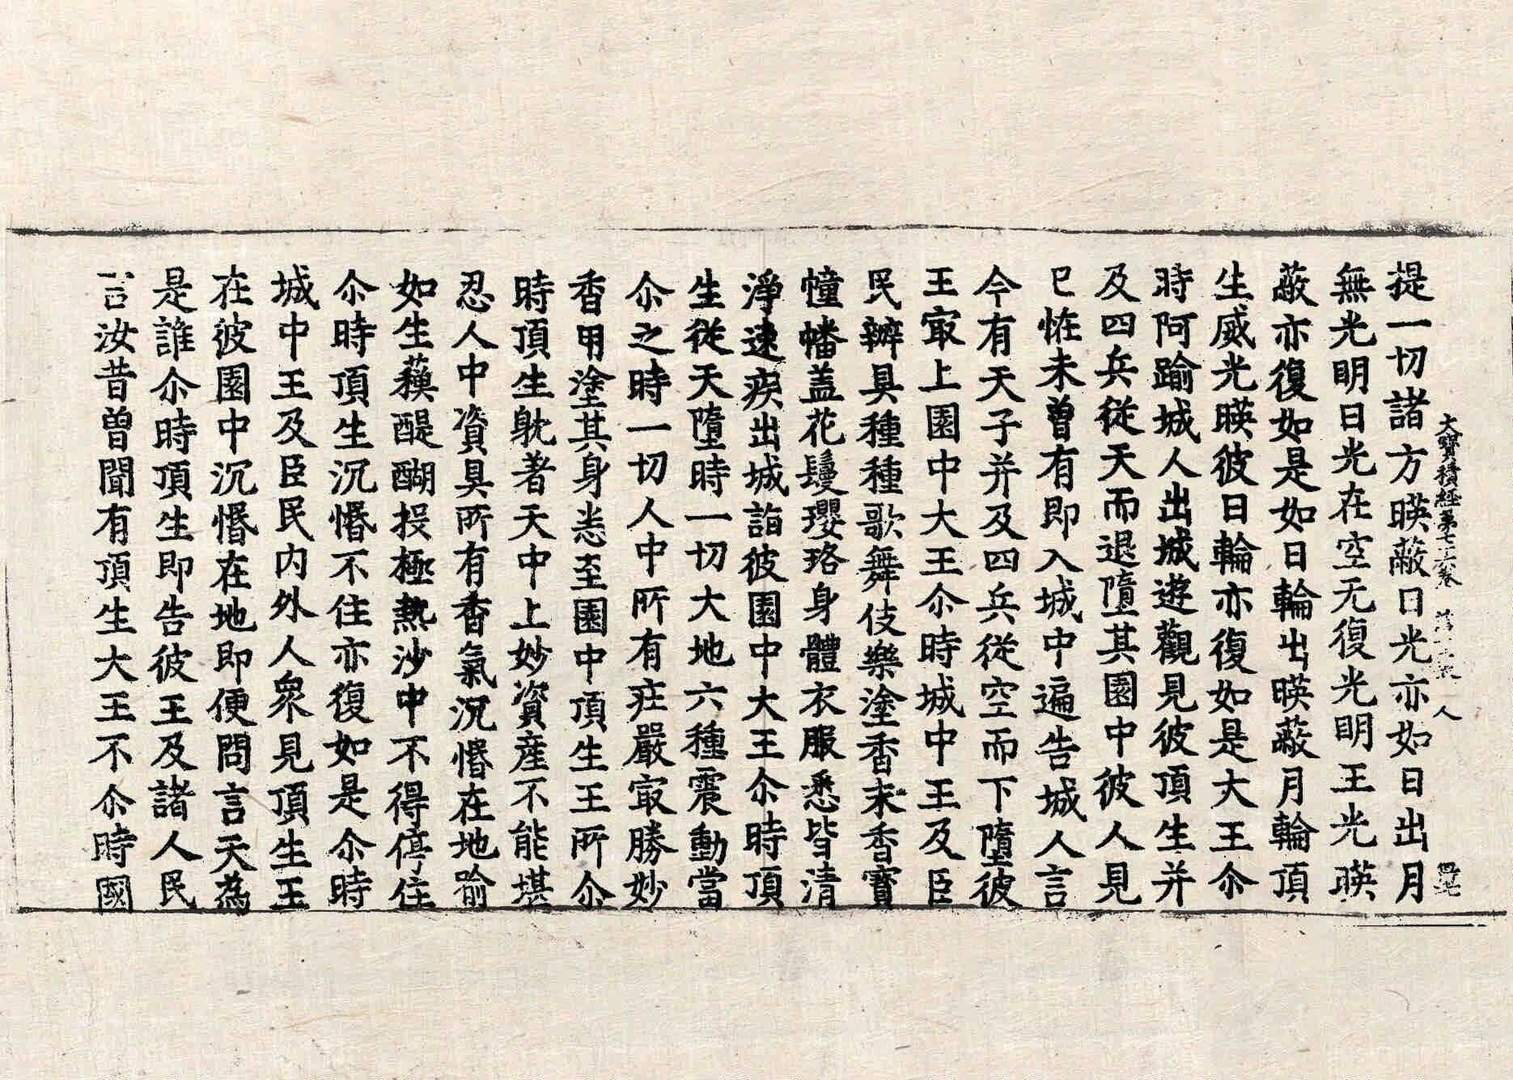 大寶積經第七十六卷 第十三張 人
提一切諸方暎蔽日光亦如日出月
無光明日光在空无復光明王光暎
蔽亦復如是如日輪出暎蔽月輪頂
生威光暎彼日輪亦復如是大王尒
時阿踰城人出城遊觀見彼頂生并
及四兵從天而退墮其園中彼人見
已恠未曾有即入城中遍告城人言
今有天子并及四兵從空而下墮彼
王㝡上園中大王尒時城中王及臣
民辦具種種歌舞伎樂塗香末香寶
幢幡盖花鬘瓔珞身體衣服悉皆清
淨速疾出城詣彼園中大王尒時頂
生從天墮時一切大地六種震動當
尒之時一切人中所有莊嚴㝡勝妙
香用塗其身恙至園中頂生王所尒
時頂生躭著天中上妙資產不能堪
忍人中資具所有香氣沉惛在地喻
如生蘓醍醐投極熱沙中不得停住
尒時頂生沉惛不住亦復如是尒時
城中王及臣民內外人衆見頂生王
在彼園中沉惛在地即便問言天為
是誰尒時頂生即告彼王及諸人民
言汝昔曾聞有頂生大王不尒時國